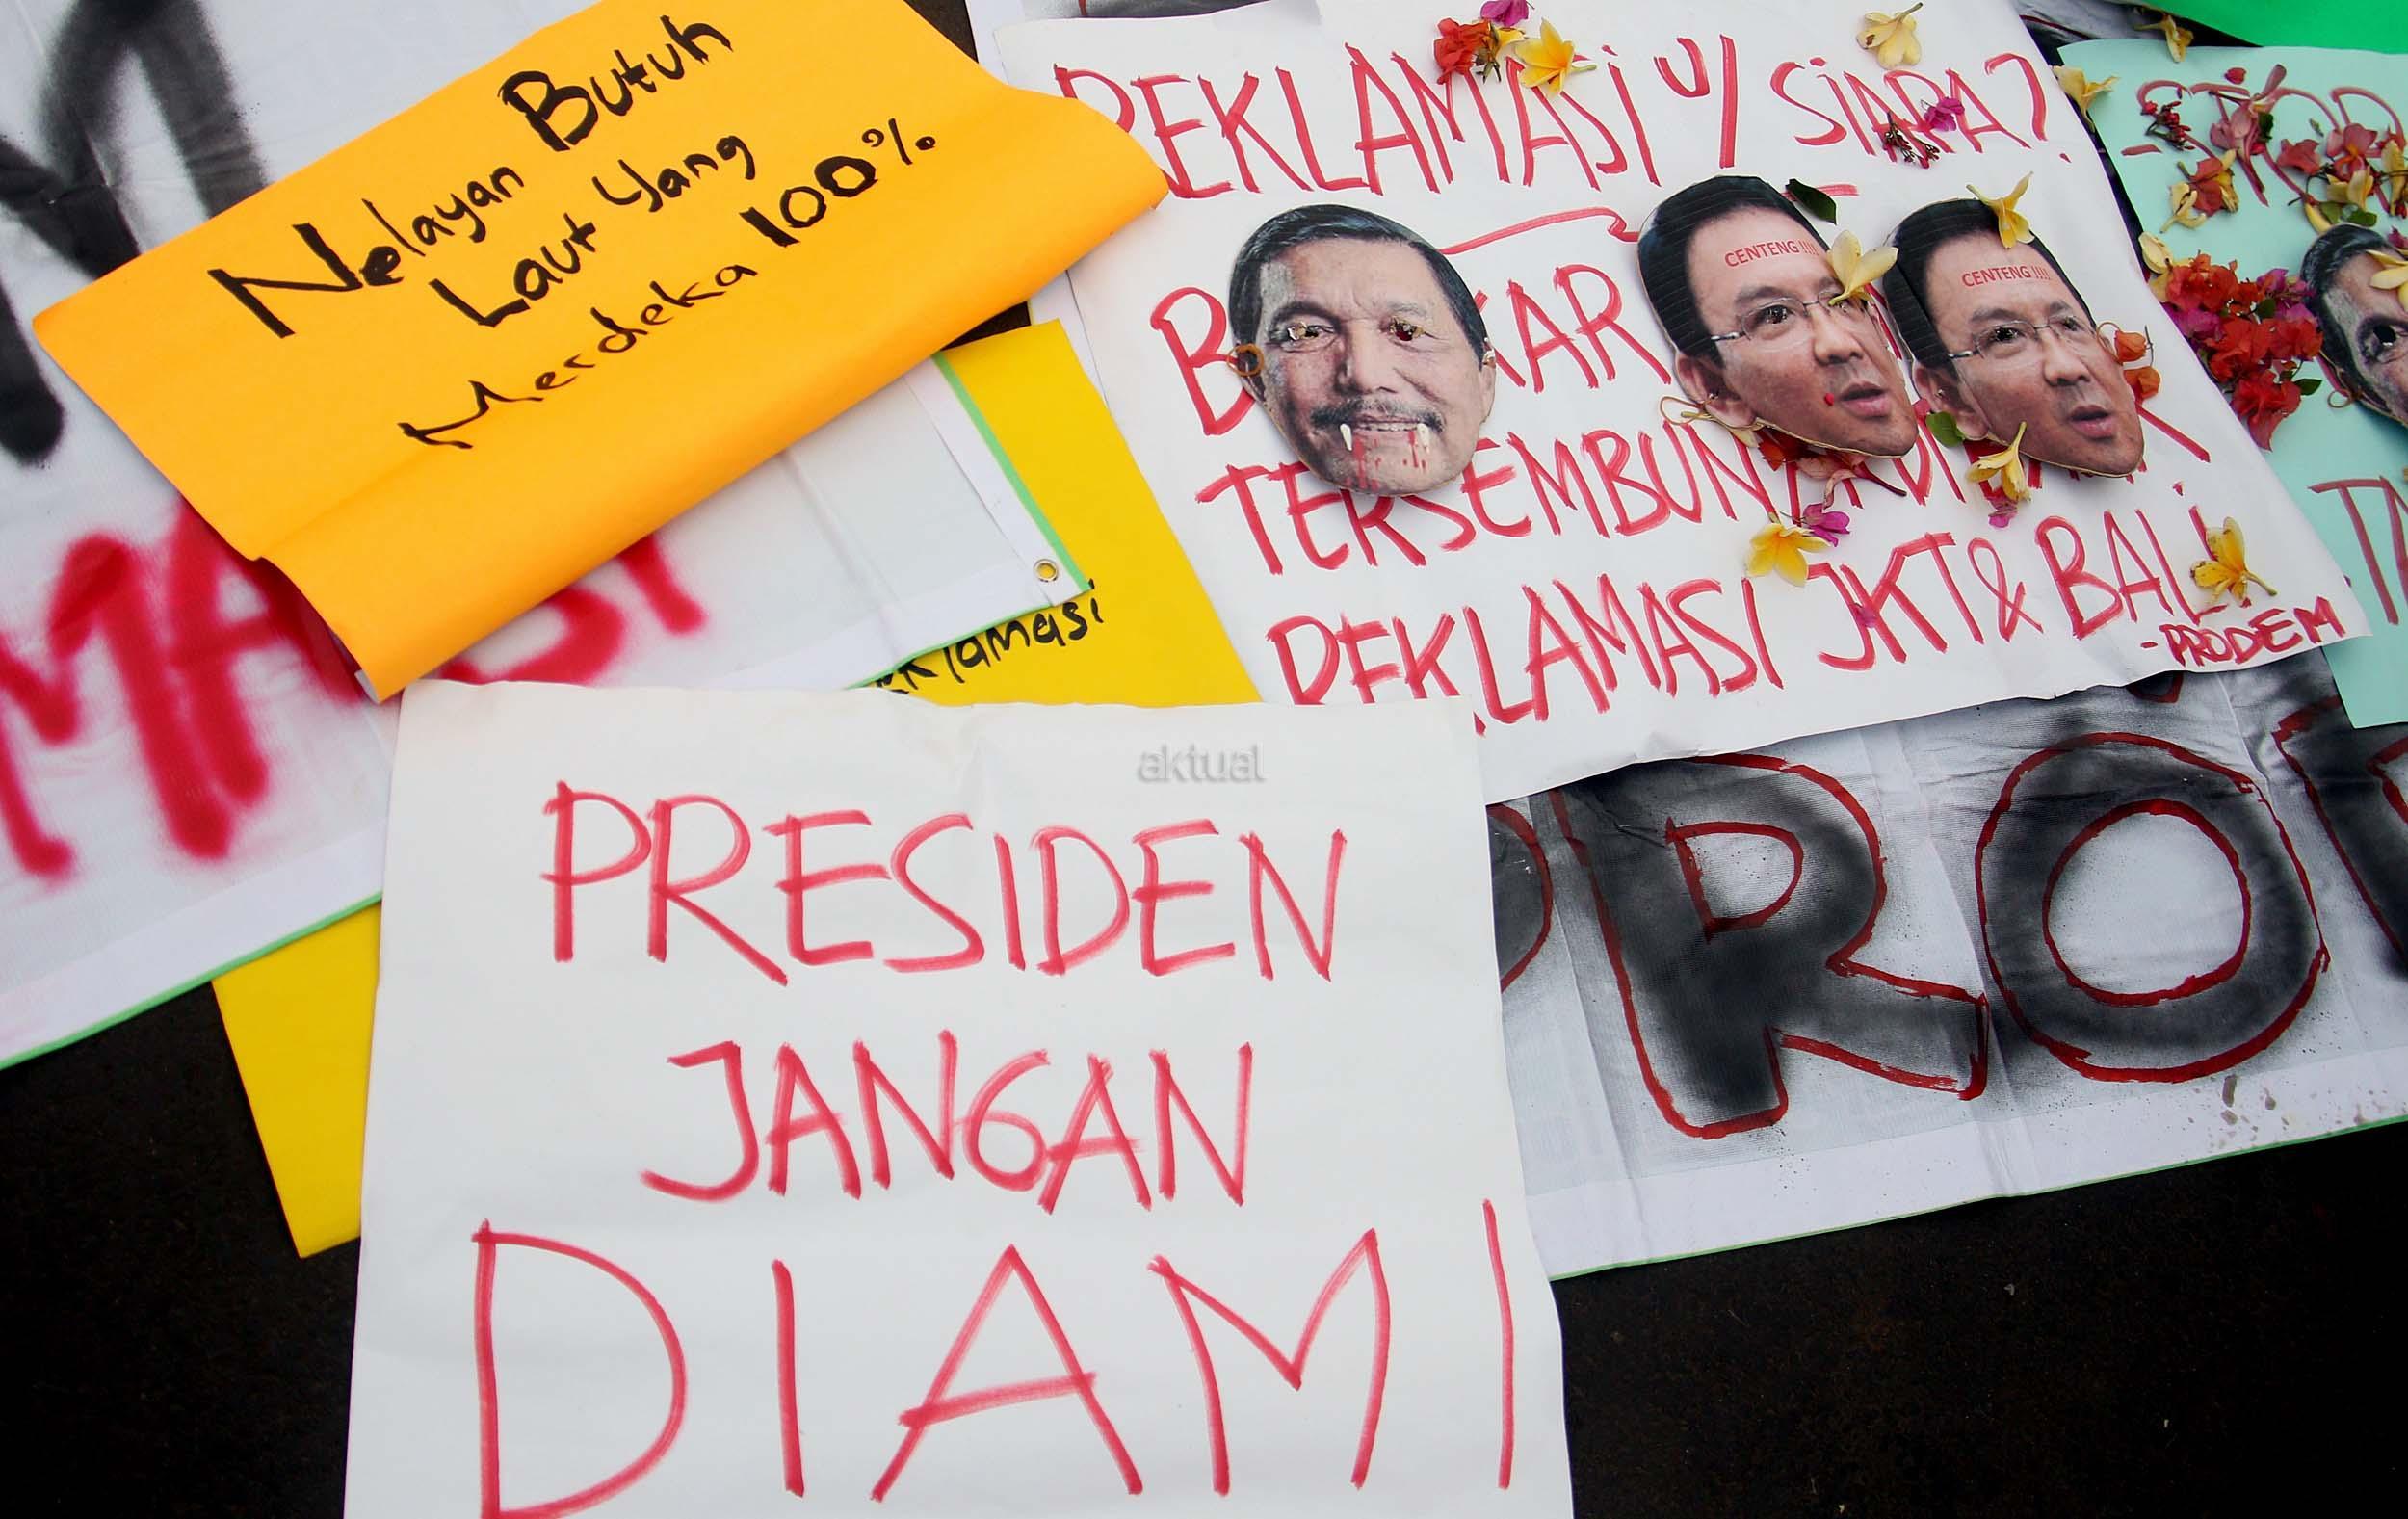 Nelayan Butuh
Laut Yang
Merdeka 100%
REKLAMASI U/ SIAPA?
TERSEMBUNYI DIBALIK
REKLAMASI JKT & BALI
-PRODEM
CENTENG !!!!
CENTENG !!!!
STOP
aktual
PRESIDEN
JANGAN
DIAMI